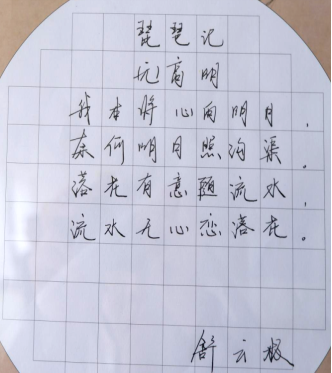 琵琶记
元高明
我本将心向明月，
奈何明月照沟渠。
落花有意随流水，
流水无心恋落花。
舒云